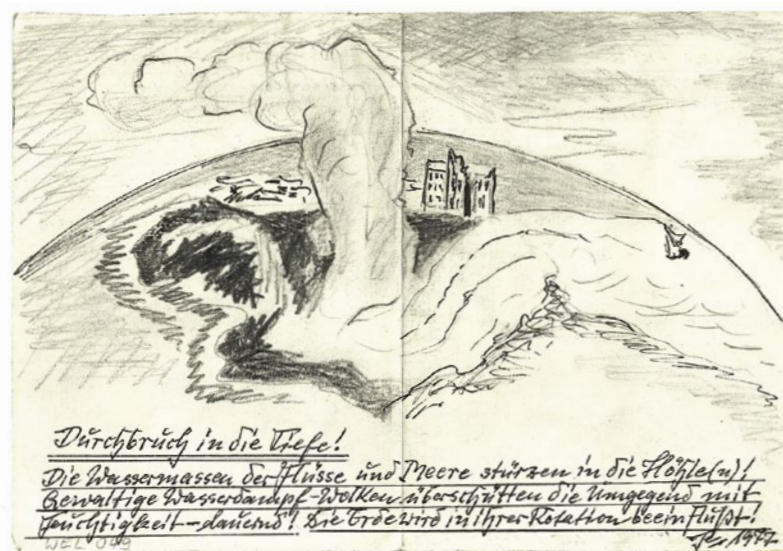 Durchbruch in die Tiefe!
Die Wassermassen der Flüsse und Meere stürzen in die Höhle(n)!
Gewaltige Wasserdampf-Wolken überschütten die Umgegend mit
Feuchtigkeit - dauernd! Die Erde wird in ihrer Rotation beeinflußt!
1977
WEL 049